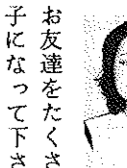 お友達をたくさ
子になって下さ